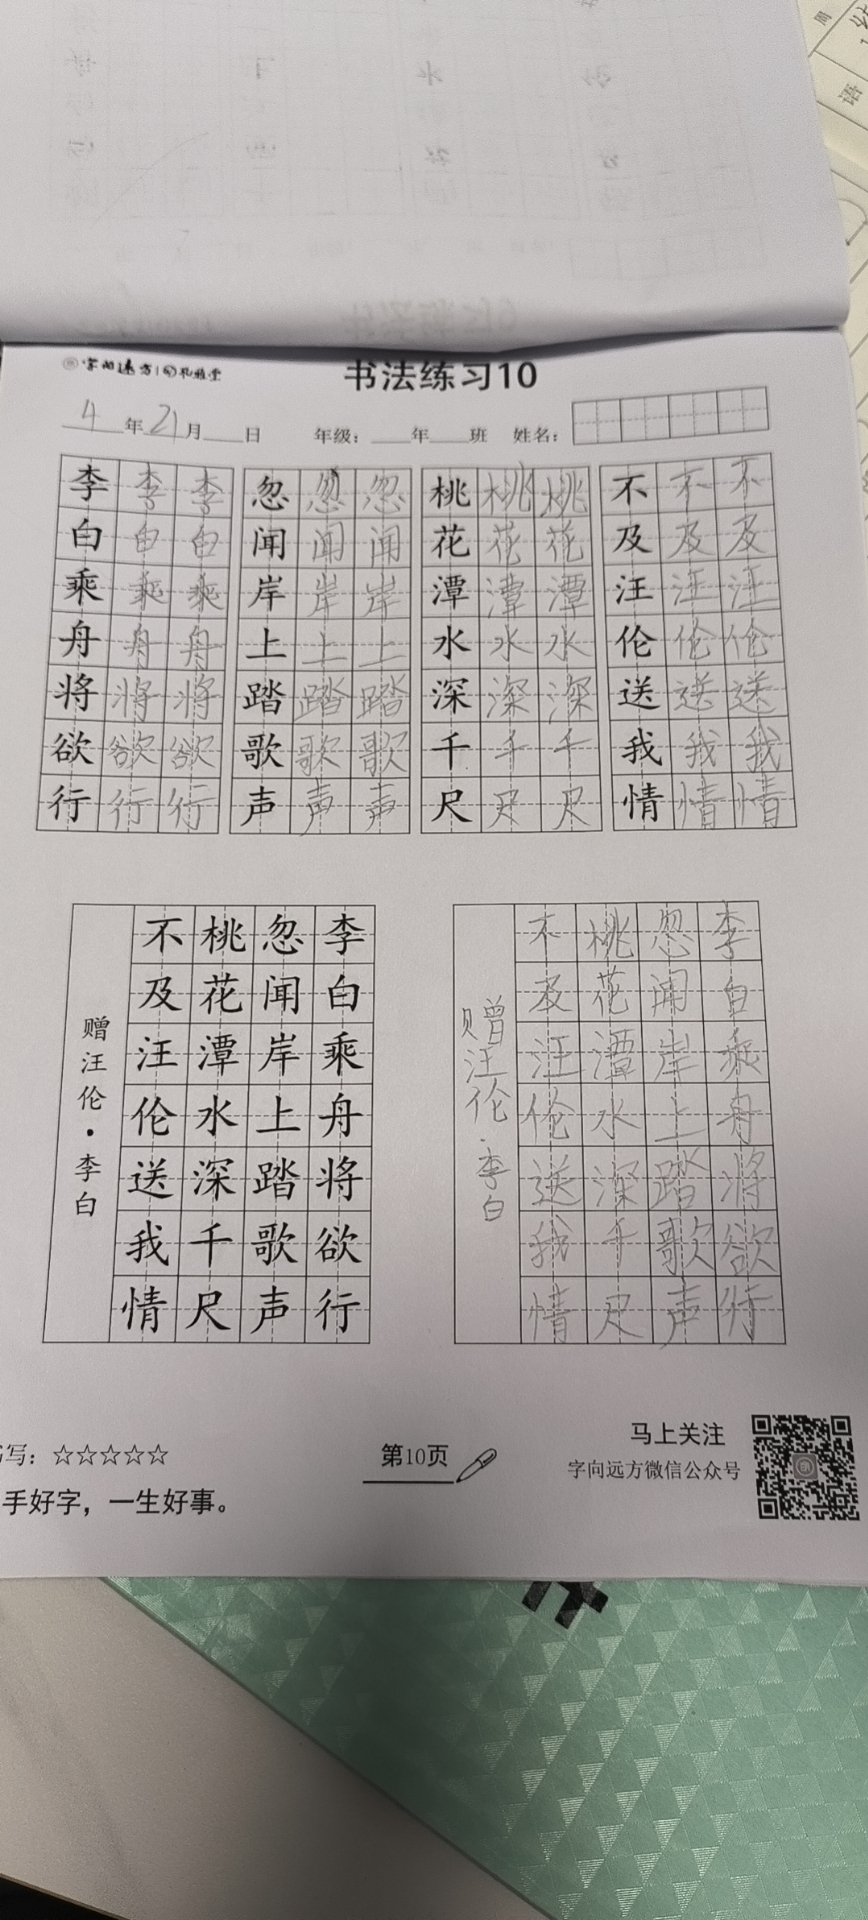 字向远方
书法练习10
4年21月 日 年级： 年 班 姓名：
李李李 忽忽忽 桃桃桃 不不不
白白白 闻闻闻 花花花 及及及
乘乘乘 岸岸岸 潭潭潭 汪汪汪
舟舟舟 上上上 水水水 伦伦伦
将将将 踏踏踏 深深深 送送送
欲欲欲 歌歌歌 千千千 我我我
行行行 声声声 尺尺尺 情情情
李白乘舟将欲行
忽闻岸上踏歌声
桃花潭水深千尺
不及汪伦送我情
赠汪伦·李白
李白乘舟将欲行
忽闻岸上踏歌声
桃花潭水深千尺
不及汪伦送我情
赠汪伦·李白
写：☆☆☆☆☆
手好字，一生好事。
第10页
马上关注
字向远方微信公众号